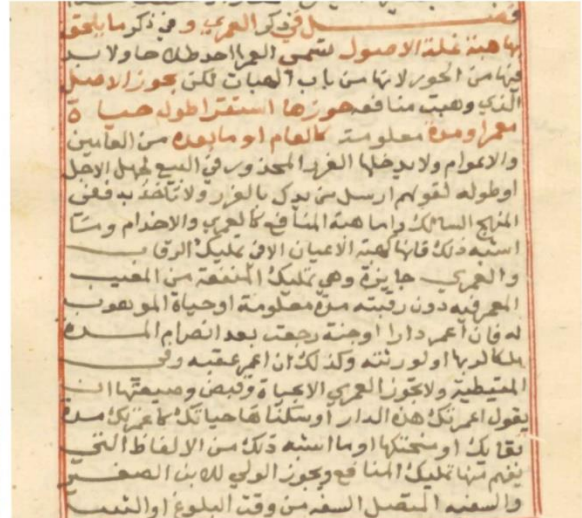 فصل في ذكر العمري وفي ذكر ما يلحق
بها هبة غلة الاصول تسمى العمرا احد طلاحا ولا بد
فيها من الحوز لانها من باب الهبات لكن بحوز الاصل
الذي وهبت منافعه حوزها استقرا طول حياة
معمر او مدة معلومة كالعام او ما بعده من العامين
والاعوام ولا يدخلها الغرر المحذور في البيع لجهل الاجل
او طوله لقولهم ارسل من يدك بالغرر ولا تأخذ به ففي
المنهج السالك واما هبة المنافع كالعمري والاخدام وما
اشبه ذلك فانها كهبة الاعيان الا في تمليك الرقاب
والعمري جايزة وهي تمليك المنفعة من المعيب
المعمر فيه دون رقبته مدة معلومة او حياة الموهوب
له فان اعمر دارا او جنة رجعت بعد انصرام المدة
لمالكها او لورثته وكذلك ان اعمر عقبه وفي
المتيطية ولا تجوز العمري الا بحياة وقبض وصيغتها ان
يقول اعمرتك هذه الدار او سكناها حياتك كاعمرتك مدة
بقايك او منحتكها او ما اشبه ذلك من الالفاظ التي
يفهم منها تمليك المنافع ويحوز الولي للابن الصغير
والسفيه المتصل السفه من وقت البلوغ او الثيب